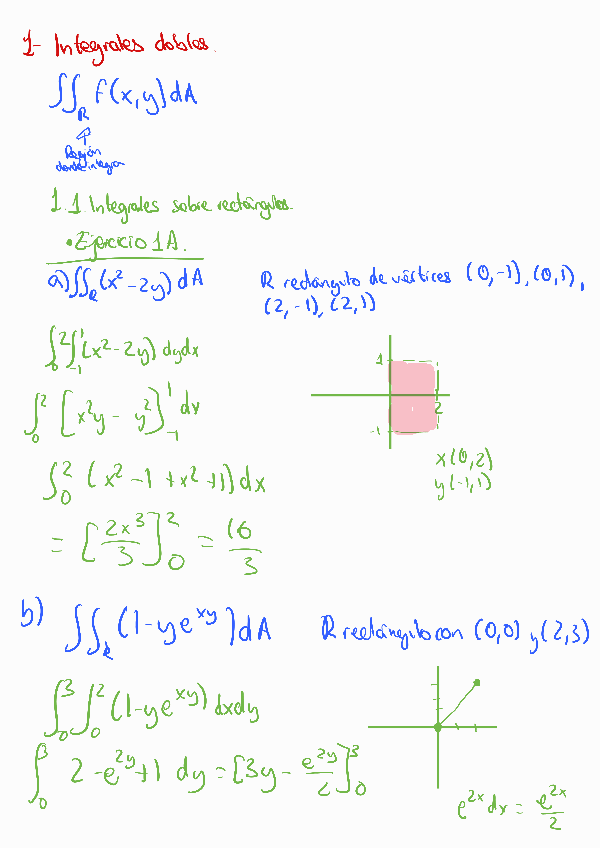 1- Integrales dobles.
∬_R f(x,y) dA
Región
donde integra
1.1 Integrales sobre rectángulos.
• Ejercicio 1A.
a) ∬_R (x² - 2y) dA R rectángulo de vértices (0,-1), (0,1),
(2,-1), (2,1)
∫_0^2 ∫_{-1}^1 (x² - 2y) dydx
1
∫_0^2 [x²y - y²]_{-1}^1 dx
2
-1
∫_0^2 (x² - 1 + x² + 1) dx
x(0,2)
y(-1,1)
= [2x³/3]_0^2 = 16/3
b) ∬_R (1 - ye^{xy}) dA R rectángulo con (0,0) y (2,3)
∫_0^3 ∫_0^2 (1 - ye^{xy}) dxdy
∫_0^3 2 - e^{2y} + 1 dy = [3y - e^{2y}/2]_0^3
e^{2x} dx = e^{2x}/2